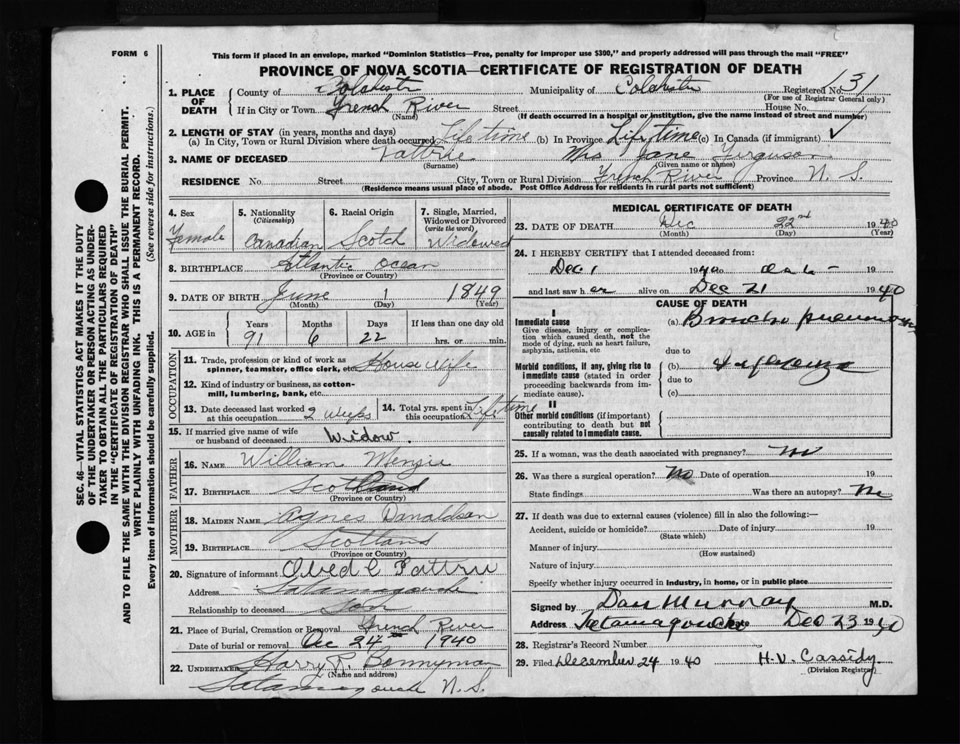 FORM 6
This form if placed in an envelope, marked "Dominion Statistics—Free, penalty for improper use $300," and properly addressed will pass through the mail "FREE"
PROVINCE OF NOVA SCOTIA—CERTIFICATE OF REGISTRATION OF DEATH
SEC. 46—VITAL STATISTICS ACT MAKES IT THE DUTY
OF THE UNDERTAKER OR PERSON ACTING AS UNDER-
TAKER TO OBTAIN ALL THE PARTICULARS REQUIRED
IN THE "CERTIFICATE OF REGISTRATION OF DEATH"
AND TO FILE THE SAME WITH THE DIVISION REGISTRAR WHO SHALL ISSUE THE BURIAL PERMIT.
WRITE PLAINLY WITH UNFADING INK. THIS IS A PERMANENT RECORD.
Every item of information should be carefully supplied. (See reverse side for instructions.)
1. PLACE OF DEATH County of Colchester Municipality of Colchester Registered No. 31
(For use of Registrar General only)
If in City or Town French River Street House No.
(Name) (If death occurred in a hospital or institution, give the name instead of street and number)
2. LENGTH OF STAY (in years, months and days)
(a) In City, Town or Rural Division where death occurred Life time (b) In Province Life time (c) In Canada (if immigrant) ✓
3. NAME OF DECEASED Tattrie Mrs Jane Ferguson
(Surname) (Given name or names)
RESIDENCE No. Street City, Town or Rural Division French River Province N. S.
(Residence means usual place of abode. Post Office Address for residents in rural parts not sufficient)
4. Sex Female
5. Nationality (Citizenship) Canadian
6. Racial Origin Scotch
7. Single, Married, Widowed or Divorced (write the word) Widowed
8. BIRTHPLACE Atlantic Ocean
(Province or Country)
9. DATE OF BIRTH June 1 1849
(Month) (Day) (Year)
10. AGE in Years Months Days If less than one day old
91 6 22 hrs. or min.
OCCUPATION
11. Trade, profession or kind of work as spinner, teamster, office clerk, etc. House wife
12. Kind of industry or business, as cotton-mill, lumbering, bank, etc.
13. Date deceased last worked at this occupation 2 weeks 14. Total yrs. spent in this occupation Lifetime
15. If married give name of wife or husband of deceased Widow.
FATHER
16. NAME William Menzie
17. BIRTHPLACE Scotland
(Province or Country)
MOTHER
18. MAIDEN NAME Agnes Danaldson
19. BIRTHPLACE Scotland
(Province or Country)
20. Signature of informant Obed C Tattrie
Address Tatamagouche
Relationship to deceased Son
21. Place of Burial, Cremation or Removal French River
Date of burial or removal Dec 24th 1940
22. UNDERTAKER Harry R. Bonnyman
(Name and address)
Tatamagouche N. S.
MEDICAL CERTIFICATE OF DEATH
23. DATE OF DEATH Dec 22nd 1940
(Month) (Day) (Year)
24. I HEREBY CERTIFY that I attended deceased from:
Dec 1 1940 19
and last saw her alive on Dec 21 1940
CAUSE OF DEATH
I
Immediate cause (a) Broncho pneumonia
Give disease, injury or complication which caused death, not the mode of dying, such as heart failure, asphyxia, asthenia, etc
due to
Morbid conditions, if any, giving rise to immediate cause (stated in order proceeding backwards from immediate cause). (b) Influenza
due to
(c)
II
Other morbid conditions (if important) contributing to death but not causally related to immediate cause.
25. If a woman, was the death associated with pregnancy? No
26. Was there a surgical operation? No Date of operation 19
State findings Was there an autopsy? No
27. If death was due to external causes (violence) fill in also the following:—
Accident, suicide or homicide? Date of injury 19
(State which)
Manner of injury
(How sustained)
Nature of injury
Specify whether injury occurred in industry, in home, or in public place
Signed by Dan Murray M.D.
Address Tatamagouche Dec 23 1940
28. Registrar's Record Number
29. Filed December 24 1940 H. V. Cassidy
(Division Registrar)